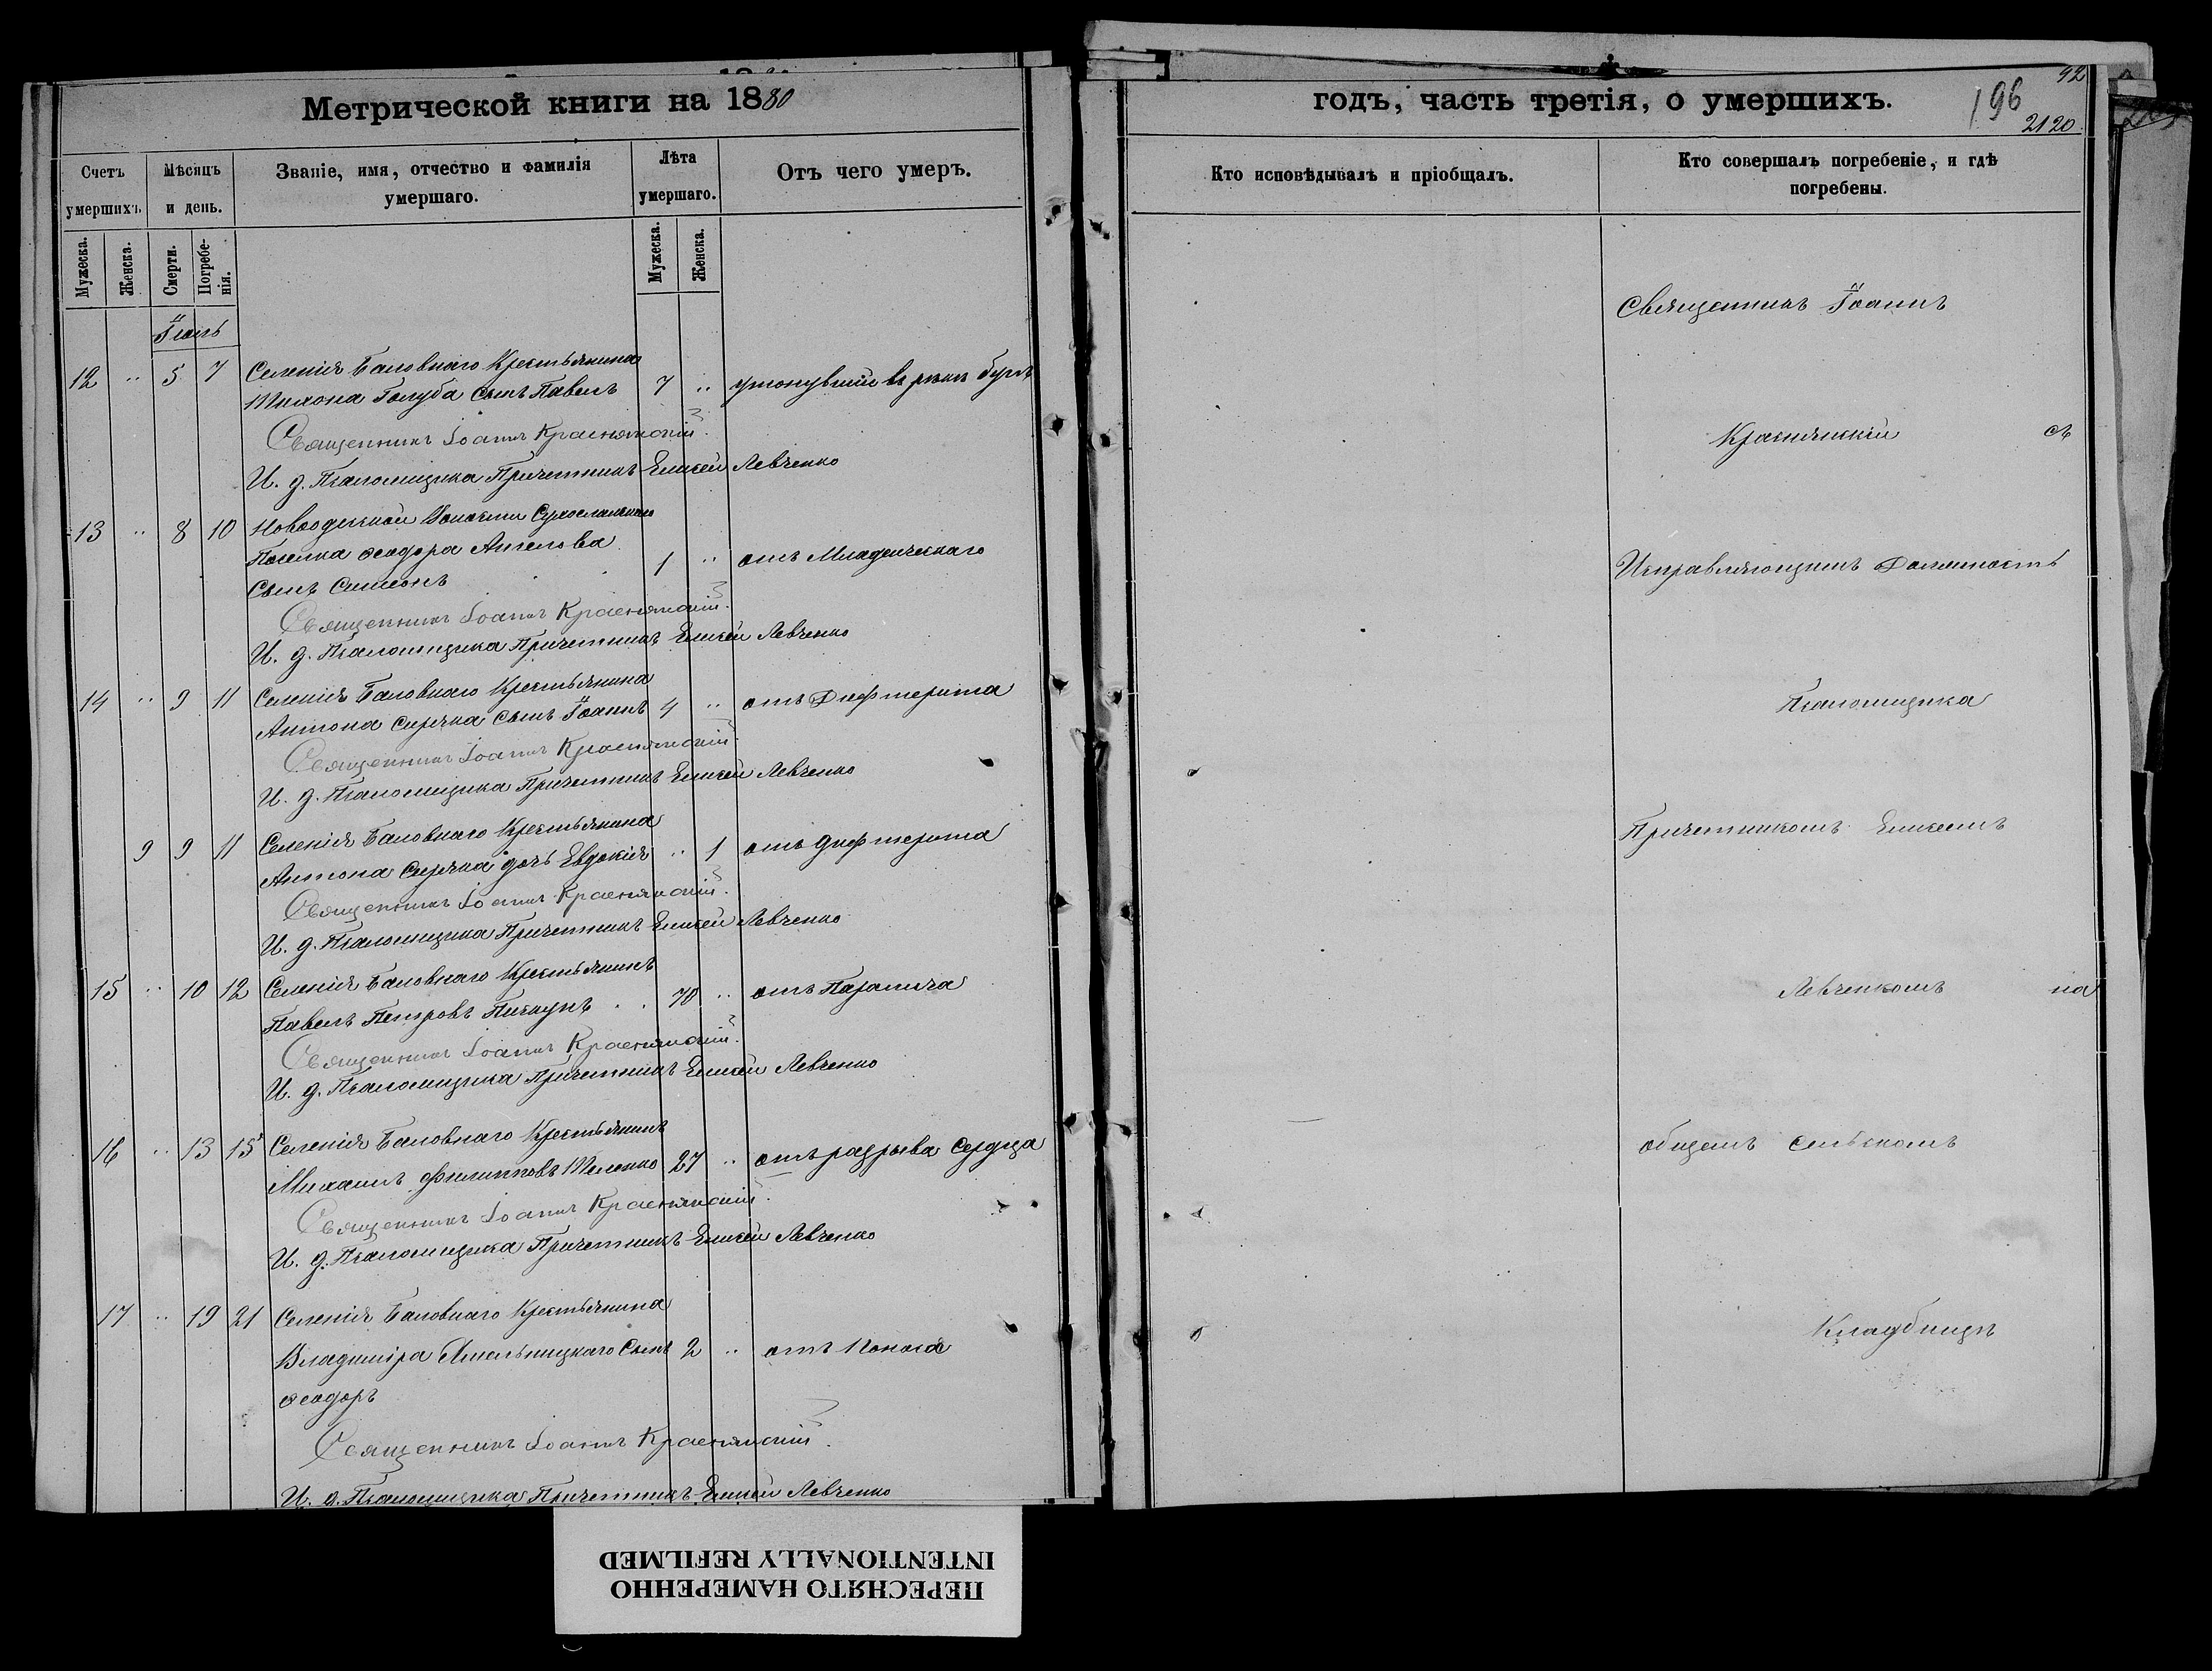 Метрической книги на 1880
Счетъ умершихъ.
Мѣсяцъ и день.
Званіе, имя, отчество и фамилія умершаго.
Лѣта умершаго.
Отъ чего умеръ.
Мужеска.
Женска.
Смерти.
Погребенія.
Мужеска.
Женска.
Іюль
12 .. 5 7 Селенія Баловнаго Крестьянина
Тихона Голуба сынъ Павелъ 7 .. утонувшій въ рѣкѣ Бугъ
Священникъ Іоаннъ Краснянскій.
И. д. Псаломщика Причетникъ Елисей Левченко
13 .. 8 10 Новоодесской Волости
Поселка Ѳеодора Ангелова
Сынъ Симеонъ 1 .. отъ Младенческаго
Священникъ Іоаннъ Краснянскій.
И. д. Псаломщика Причетникъ Елисей Левченко
14 .. 9 11 Селенія Баловнаго Крестьянина
Антона Сиряка сынъ Іоаннъ 4 .. отъ Дифтерита
Священникъ Іоаннъ Краснянскій.
И. д. Псаломщика Причетникъ Елисей Левченко
9 9 11 Селенія Баловнаго Крестьянина
Антона Сиряка дочь Евдокія .. 1 отъ дифтерита
Священникъ Іоаннъ Краснянскій.
И. д. Псаломщика Причетникъ Елисей Левченко
15 .. 10 12 Селенія Баловнаго Крестьянинъ
Павелъ Петровъ 70 .. отъ Паралича
Священникъ Іоаннъ Краснянскій.
И. д. Псаломщика Причетникъ Елисей Левченко
16 .. 13 15 Селенія Баловнаго Крестьянинъ
Михаилъ Филипповъ 27 .. отъ разрыва Сердца
Священникъ Іоаннъ Краснянскій.
И. д. Псаломщика Причетникъ Елисей Левченко
17 .. 19 21 Селенія Баловнаго Крестьянина
Владиміра Хмельницкаго Сынъ 2 .. отъ Поноса
Ѳеодоръ
Священникъ Іоаннъ Краснянскій.
И. д. Псаломщика Причетникъ Елисей Левченко
годъ, часть третія, о умершихъ.
92
196
2120.
Кто исповѣдывалъ и пріобщалъ.
Кто совершалъ погребеніе, и гдѣ погребены.
Священникъ Іоаннъ
Краснянскій съ
Исправляющимъ Должность
Псаломщика
Причетникомъ Елисеемъ
Левченкомъ на
общемъ сельскомъ
Кладбищѣ
ПЕРЕСНЯТО НАМЕРЕННО
INTENTIONALLY REFILMED